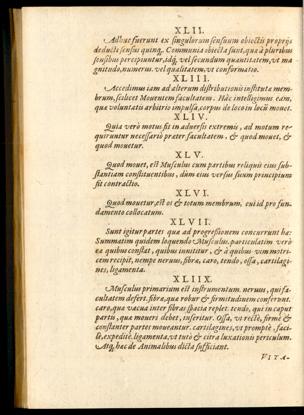 XLII.
Adhuc fuerunt ex singulorum sensuum obiectis proprijs
deducti sensus quinq. Communia obiecta sunt, quæ à pluribus
sensibus percipiuntur, idq́; vel secundum quantitatem, vt ma
gnitudo, numerus. vel qualitatem, vt conformatio.
XLIII.
Accedimus iam ad alterum distributionis institutæ mem-
brum, scilicet Mouentem facultatem. Hâc intelligimus eam,
qua voluntatis arbitrio impulsa, corpus de loco in locũ mouet.
XLIV.
Quia verò motus fit in aduersũ extremis, ad motum re-
quiruntur necessariò præter facultatem, & quod mouet, &
quod mouetur.
XLV.
Quod mouet, est Musculus cum partibus reliquis eius sub-
stantiam constituentibus, dum eius versus suum principium
fit contractio.
XLVI.
Quod mouetur, est os & totum membrum, cui id pro fun-
damento collocatum.
XLVII.
Sunt igitur partes quæ ad progressionem concurrunt hæ:
Summatim quidem loquendo Musculus. particulatim verò
ea quibus constat, quibus innititur, & à quibus vim motri-
cem recipit, nempe neruus, fibræ, caro, tendo, ossa, cartilagi-
nes, ligamenta.
XLIIX.
Musculus primarium est instrumentum. neruus, qui fa-
cultatem defert. fibræ, quæ robur & firmitudinem conferunt.
caro, quæ vacua inter fibras spacia replet. tendo, qui in caput
partis, quæ moueri debet, inseritur. Ossa, vt rectè, firmè &
constanter partes moueantur. cartilagines, vt promptè, faci-
lè, expeditè. ligamenta, vt tutò & citra luxationis periculum.
Atq; hæc de Animalibus dicta sufficiant.
VITA-